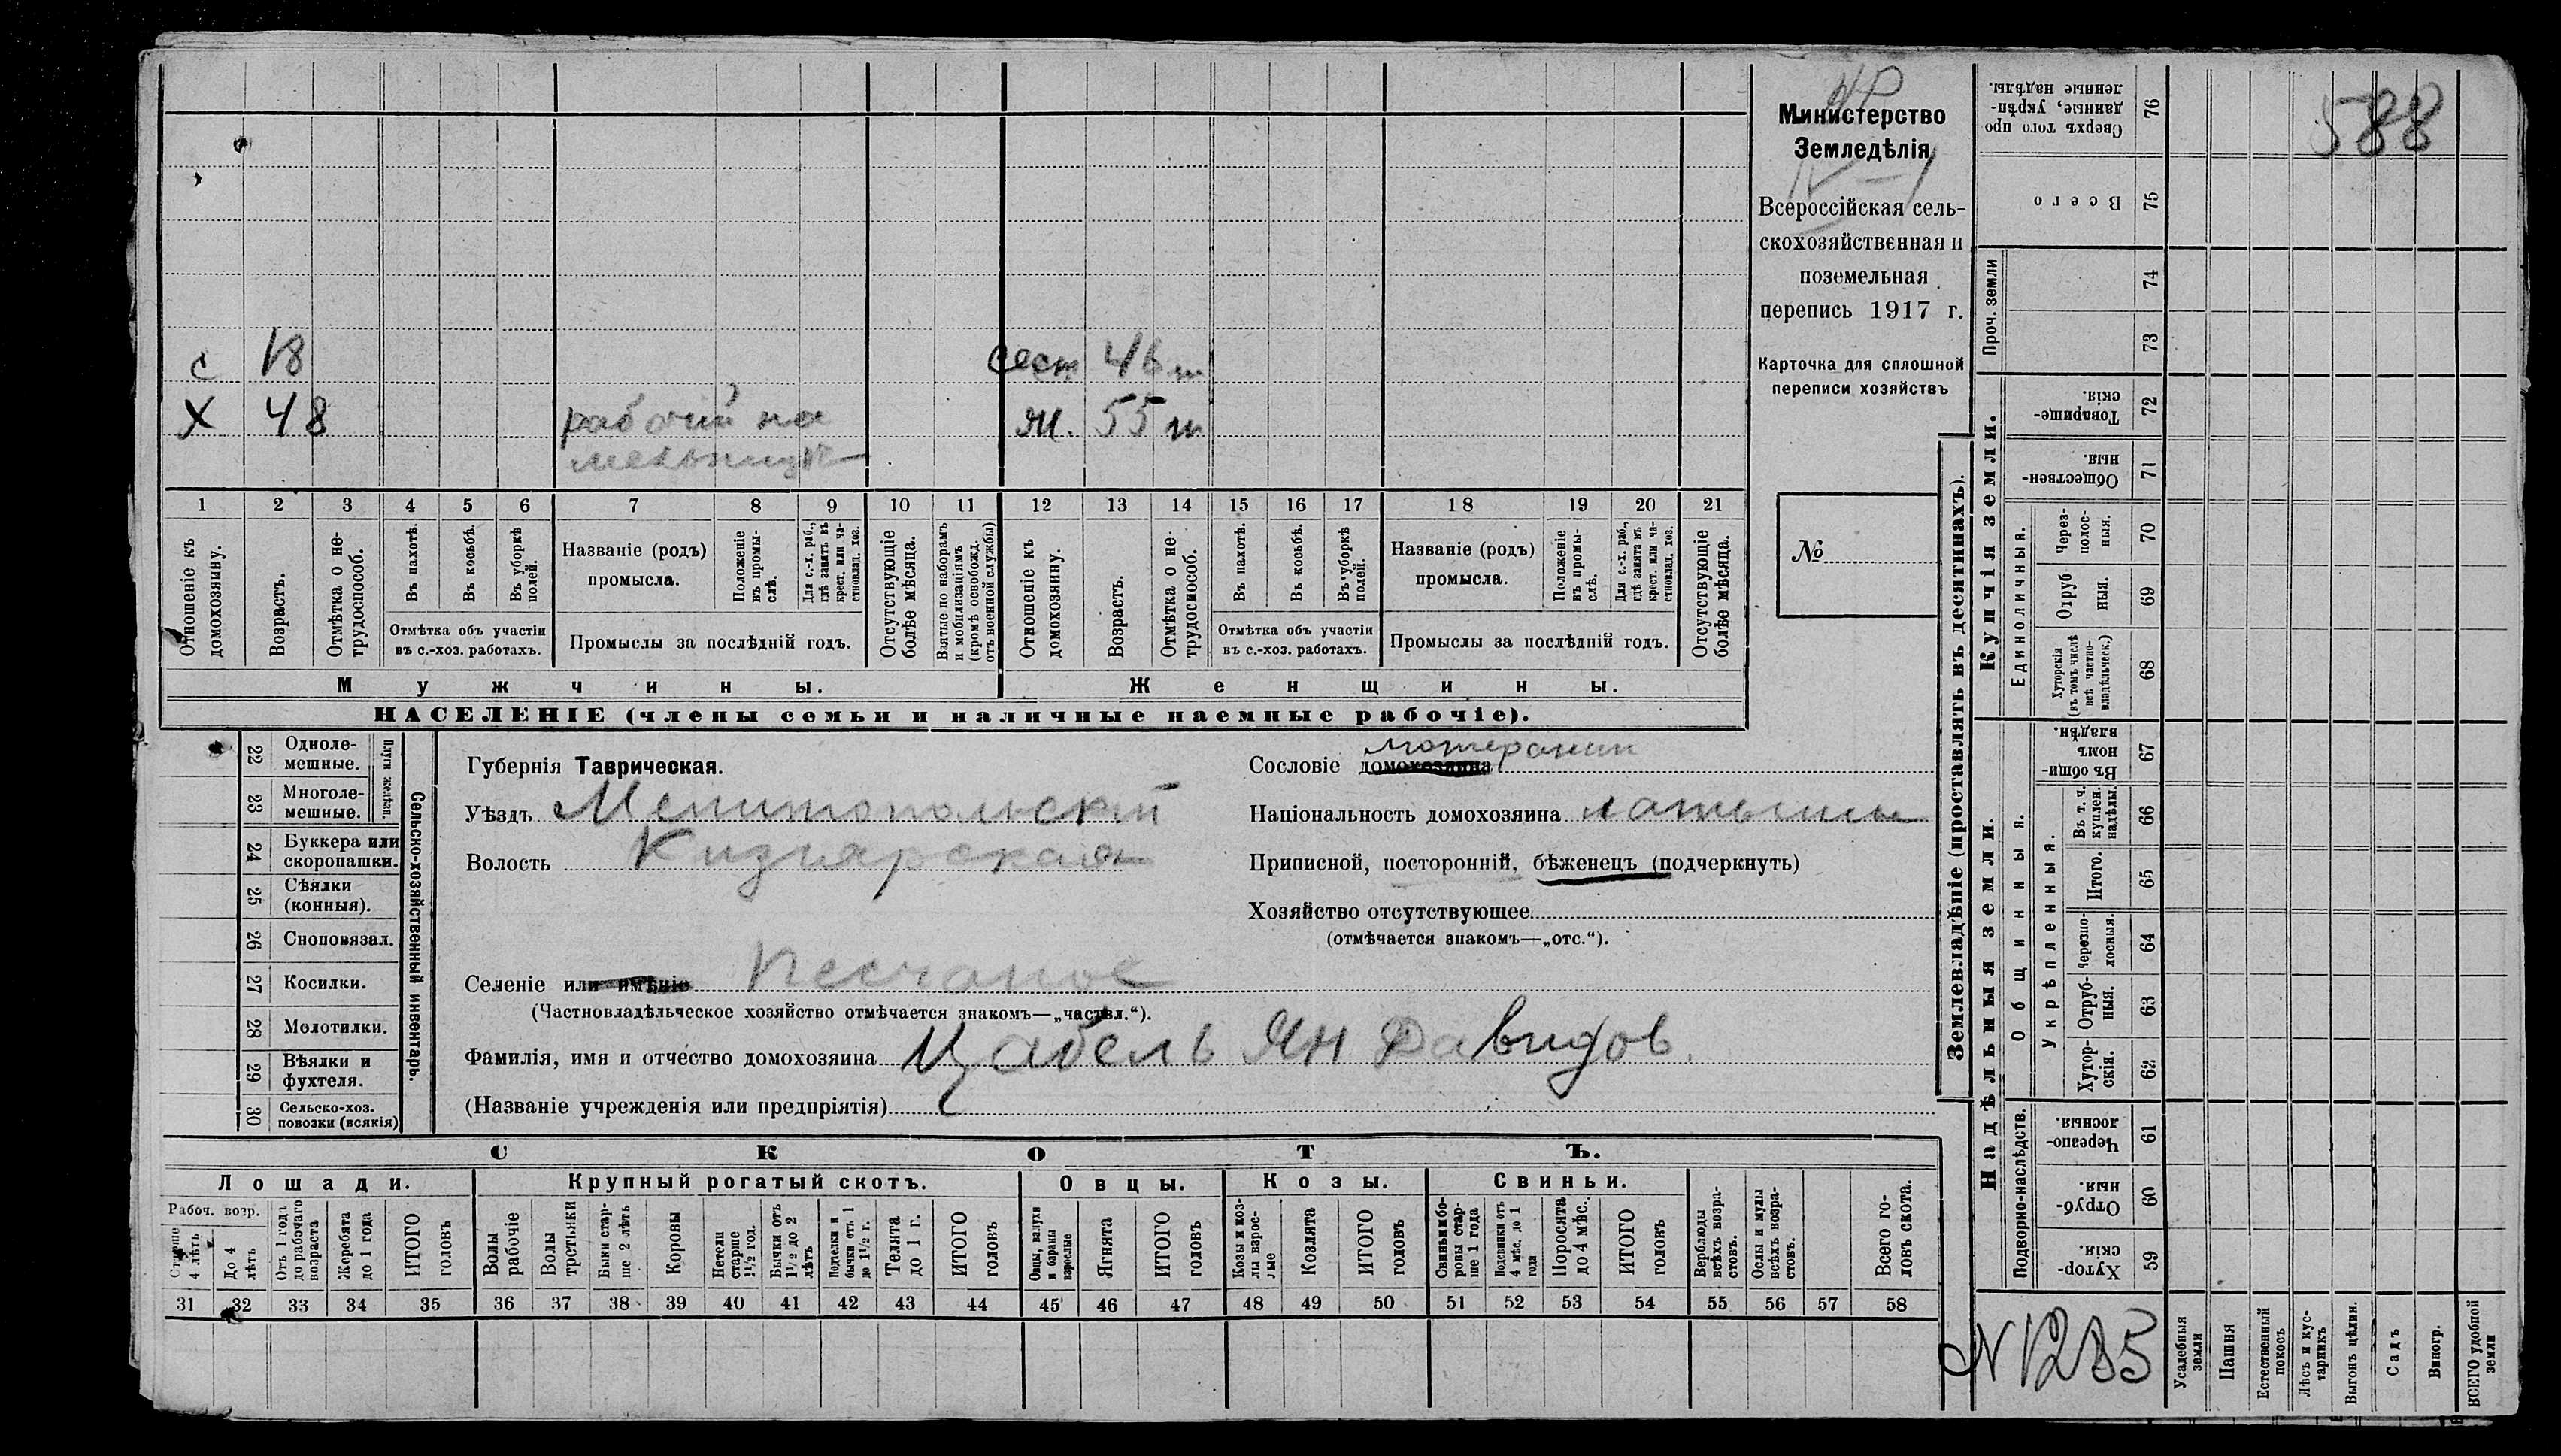 588
Министерство
Земледѣлія
Всероссійская сель-
скохозяйственная и
поземельная
перепись 1917 г.
Карточка для сплошной
переписи хозяйствъ
№
с 18
сест 46
Х 48 рабочий на
мельницѣ
ж. 55
1 2 3 4 5 6 7 8 9 10 11 12 13 14 15 16 17 18 19 20 21
Отношеніе къ домохозяину.
Возрастъ.
Отмѣтка о не-трудоспособ.
Въ пахотѣ.
Въ косьбѣ.
Въ уборкѣ полей.
Отмѣтка объ участіи
въ с.-хоз. работахъ.
Названіе (родъ)
промысла.
Положеніе въ промы-слѣ.
Для с.-х. раб., гдѣ занятъ въ крест. или ча-стновлад. хоз.
Промыслы за послѣдній годъ.
Отсутствующіе болѣе мѣсяца.
Взятые по наборамъ и мобилизаціямъ (кромѣ освобожд. отъ военной службы)
Отношеніе къ домохозяину.
Возрастъ.
Отмѣтка о не-трудоспособ.
Въ пахотѣ.
Въ косьбѣ.
Въ уборкѣ полей.
Отмѣтка объ участіи
въ с.-хоз. работахъ.
Названіе (родъ)
промысла.
Положеніе въ промы-слѣ.
Для с.-х. раб., гдѣ занята въ крест. или ча-стновлад. хоз.
Промыслы за послѣдній годъ.
Отсутствующіе болѣе мѣсяца.
Мужчины.
Женщины.
НАСЕЛЕНІЕ (члены семьи и наличные наемные рабочіе).
Сельско-хозяйственный инвентарь.
Плуги желѣзн.
22 Одноле-мешные.
23 Многоле-мешные.
24 Буккера или скоропашки.
25 Сѣялки (конныя).
26 Сноповязал.
27 Косилки.
28 Молотилки.
29 Вѣялки и фухтеля.
30 Сельско-хоз. повозки (всякія)
Губернія Таврическая.
Уѣздъ Мелитопольскій
Волость Кизиярская
Селеніе или имѣніе Песчаное
(Частновладѣльческое хозяйство отмѣчается знакомъ—„частвл.“).
Фамилія, имя и отчество домохозяина Цабель Ян Давидов.
(Названіе учрежденія или предпріятія)
Сословіе домохозяина
Національность домохозяина латыши
Приписной, посторонній, бѣженецъ (подчеркнуть)
Хозяйство отсутствующее
(отмѣчается знакомъ—„отс.“).
СКОТЪ.
Лошади.
Крупный рогатый скотъ.
Овцы.
Козы.
Свиньи.
Рабоч. возр.
Старше 4 лѣтъ
До 4 лѣтъ
Отъ 1 года до рабочаго возраста
Жеребята до 1 года
ИТОГО головъ
Волы рабочіе
Волы третьяки
Быки стар-ше 2 лѣтъ
Коровы
Нетели старше 1½ год.
Бычки отъ 1½ до 2 лѣтъ
Подтелки и бычки отъ 1 до 1½ г.
Телята до 1 г.
ИТОГО головъ
Овцы, валухи и бараны взрослые
Ягнята
ИТОГО головъ
Козы и коз-лы взрос-лые
Козлята
ИТОГО головъ
Свиньи и бо-ровы стар-ше 1 года
Подсвинки отъ 4 мѣс. до 1 года
Поросята до 4 мѣс.
ИТОГО головъ
Верблюды всѣхъ возра-стовъ.
Ослы и мулы всѣхъ возра-стовъ.
Всего го-ловъ скота.
31 32 33 34 35 36 37 38 39 40 41 42 43 44 45 46 47 48 49 50 51 52 53 54 55 56 57 58
Землевладѣніе (проставлять въ десятинахъ).
Купчія земли.
Надѣльныя земли.
Сверхъ того про данные, укрѣп-ленные надѣлы. 76
Всего 75
Проч. земли
74
73
Товарище-скія. 72
Обществен-ныя. 71
Единоличныя.
Через-полос-ныя. 70
Отруб ныя. 69
Хуторскія (въ томъ числѣ всѣ частно-владѣльческ.) 68
Общинныя.
Въ общин-номъ владѣн. 67
Укрѣпленныя.
Въ т. ч. куплен. надѣлы. 66
Итого. 65
Черезпо-лосныя. 64
Отруб-ныя. 63
Хутор-скія. 62
Подворно-наслѣдств.
Черезпо-лосныя. 61
Отруб-ныя. 60
Хутор-скія. 59
N 1285
Усадебныя земли
Пашня
Естественный покосъ
Лѣсъ и кус-тарникъ
Выгонъ цѣлин.
Садъ
Виногр.
ВСЕГО удобной земли